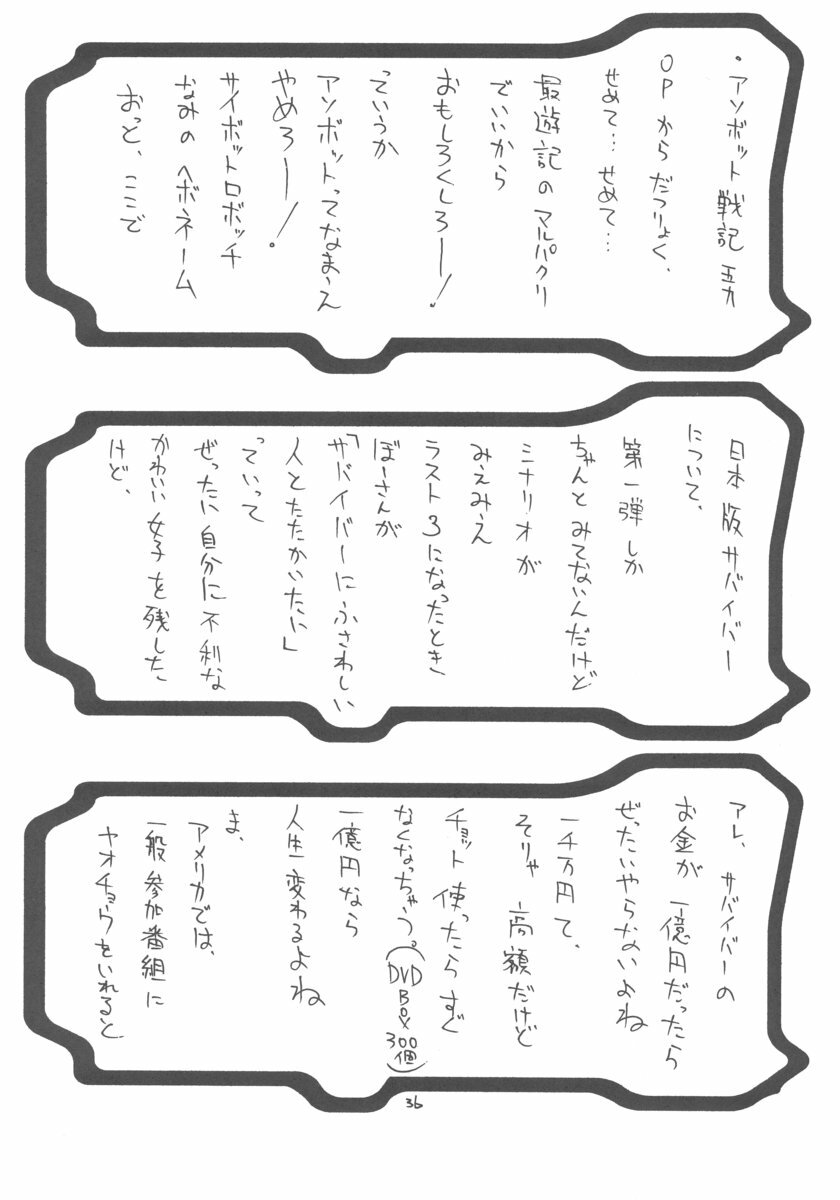 ・アソボット戦記 五九
OPからだつりょく、
せめて…せめて…
最遊記のマルパクリ
でいいから
おもしろくしろー！
っていうか
アソボットってなまえ
やめろー！
サイボットロボッチ
なみのヘボネーム
おっと、ここで
日本版サバイバー
について、
第一弾しか
ちゃんとみてないんだけど
ミナリオが
みえみえ
ラスト3になったとき
ぼーさんが
「サバイバーにふさわしい
人とたたかいたい」
っていって
ぜったい自分に不利な
かわいい女子を残した
けど、
アレ、サバイバーの
お金が一億円だったら
ぜったいやらないよね
一千万円て、
そりゃ高額だけど
チョット使ったらすぐ
なくなっちゃう。(DVDBOX300個)
一億円なら
人生変わるよね
ま、
アメリカでは、
一般参加番組に
ヤオチョウをいれると
36